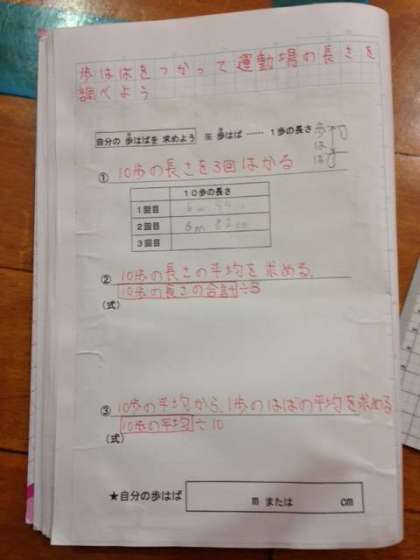 歩はばをつかって運動場の長さを
調べよう
自分の 歩はばを 求めよう ※ 歩はば …… 1歩の長さ
① 10歩の長さを3回はかる
10歩の長さ
1回目
2回目 6m 82cm
3回目
② 10歩の長さの平均を求める。
10歩の長さの合計÷3
(式)
③ 10歩の平均から、1歩のはばの平均を求める
10歩の平均÷10
(式)
★自分の歩はば m または cm